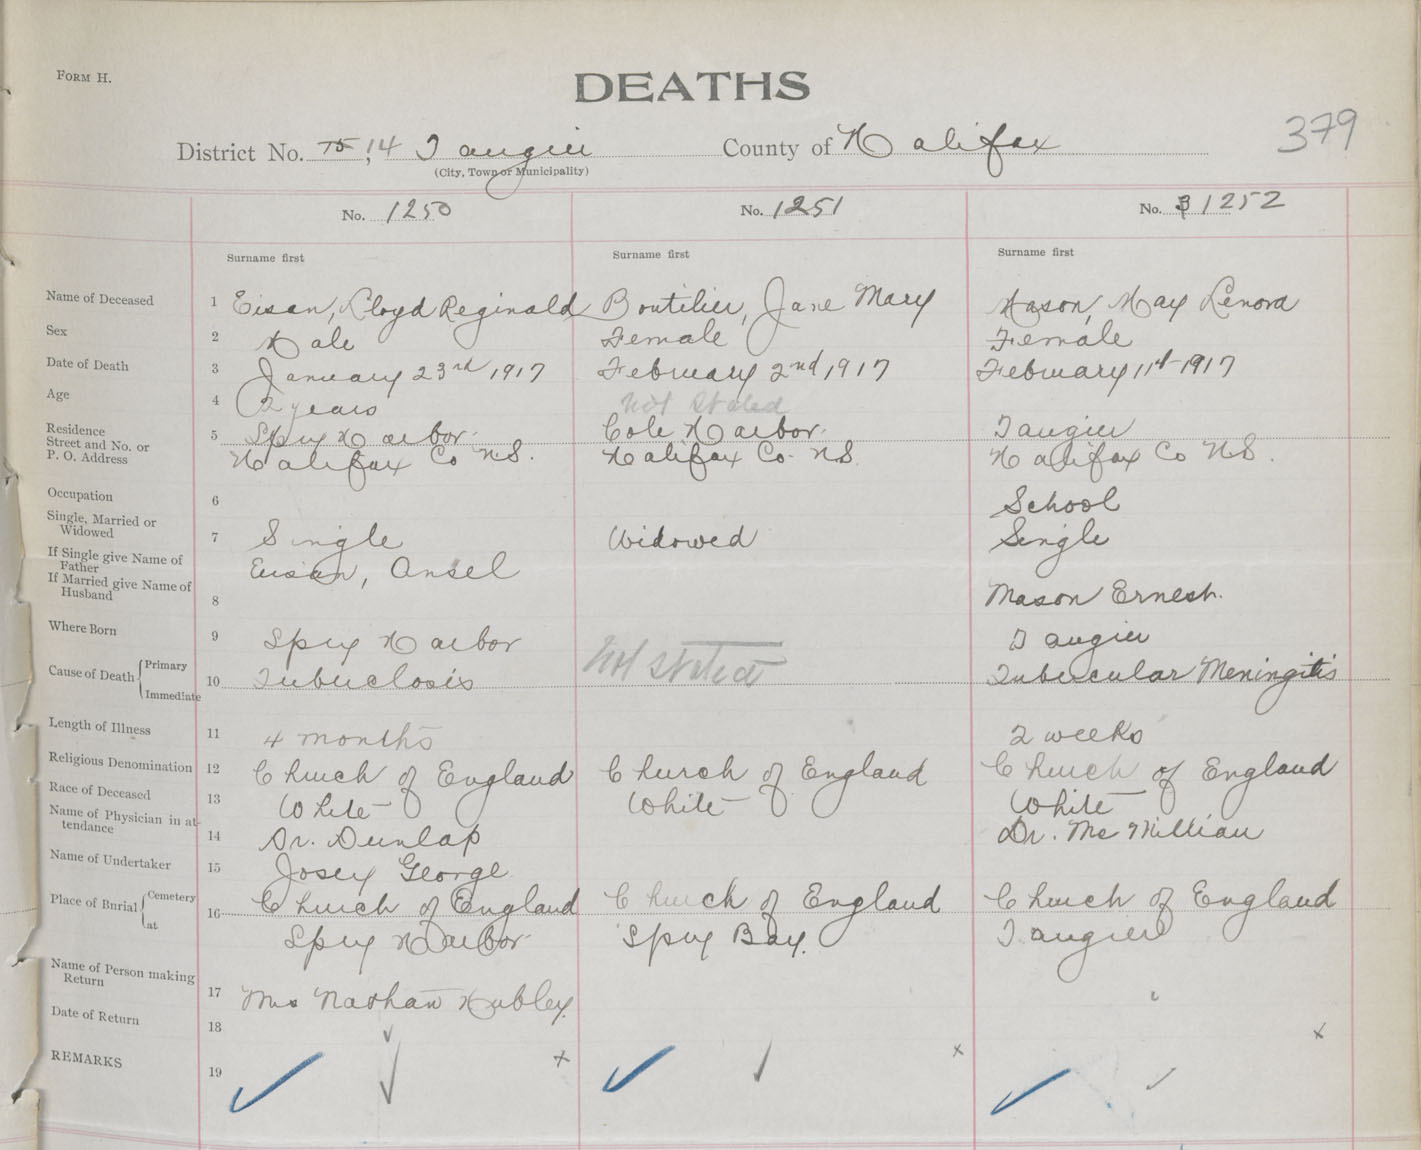 FORM H.
DEATHS
379
District No. 15, 14 Tangier County of Halifax
(City, Town or Municipality)
No. 1250 No. 1251 No. 3 1252
Surname first Surname first Surname first
Name of Deceased 1 Eisan, Lloyd Reginald Boutilier, Jane Mary Mason, May Lenora
Sex 2 Male Female Female
Date of Death 3 January 23rd 1917 February 2nd 1917 February 11st 1917
Age 4 2 years Not Stated
Residence 5 Spry Harbor Cole Harbor Tangier
Street and No. or
P. O. Address Halifax Co N.S. Halifax Co. N.S. Halifax Co N.S.
Occupation 6 School
Single, Married or
Widowed 7 Single Widowed Single
If Single give Name of
Father Eisan, Ansel
If Married give Name of
Husband 8 Mason Ernest.
Where Born 9 Spry Harbor Tangier
Cause of Death { Primary
Immediate 10 Tuberclosis Not Stated Tubercular Meningitis
Length of Illness 11 4 months 2 weeks
Religious Denomination 12 Church of England Church of England Church of England
Race of Deceased 13 White White White
Name of Physician in at-
tendance 14 Dr. Dunlap Dr. Mc Millian
Name of Undertaker 15 Josey George
Place of Burial { Cemetery
at 16 Church of England Church of England Church of England
Spry Harbor Spry Bay. Tangier
Name of Person making
Return 17 Mrs Nathan Hubley.
Date of Return 18
REMARKS 19